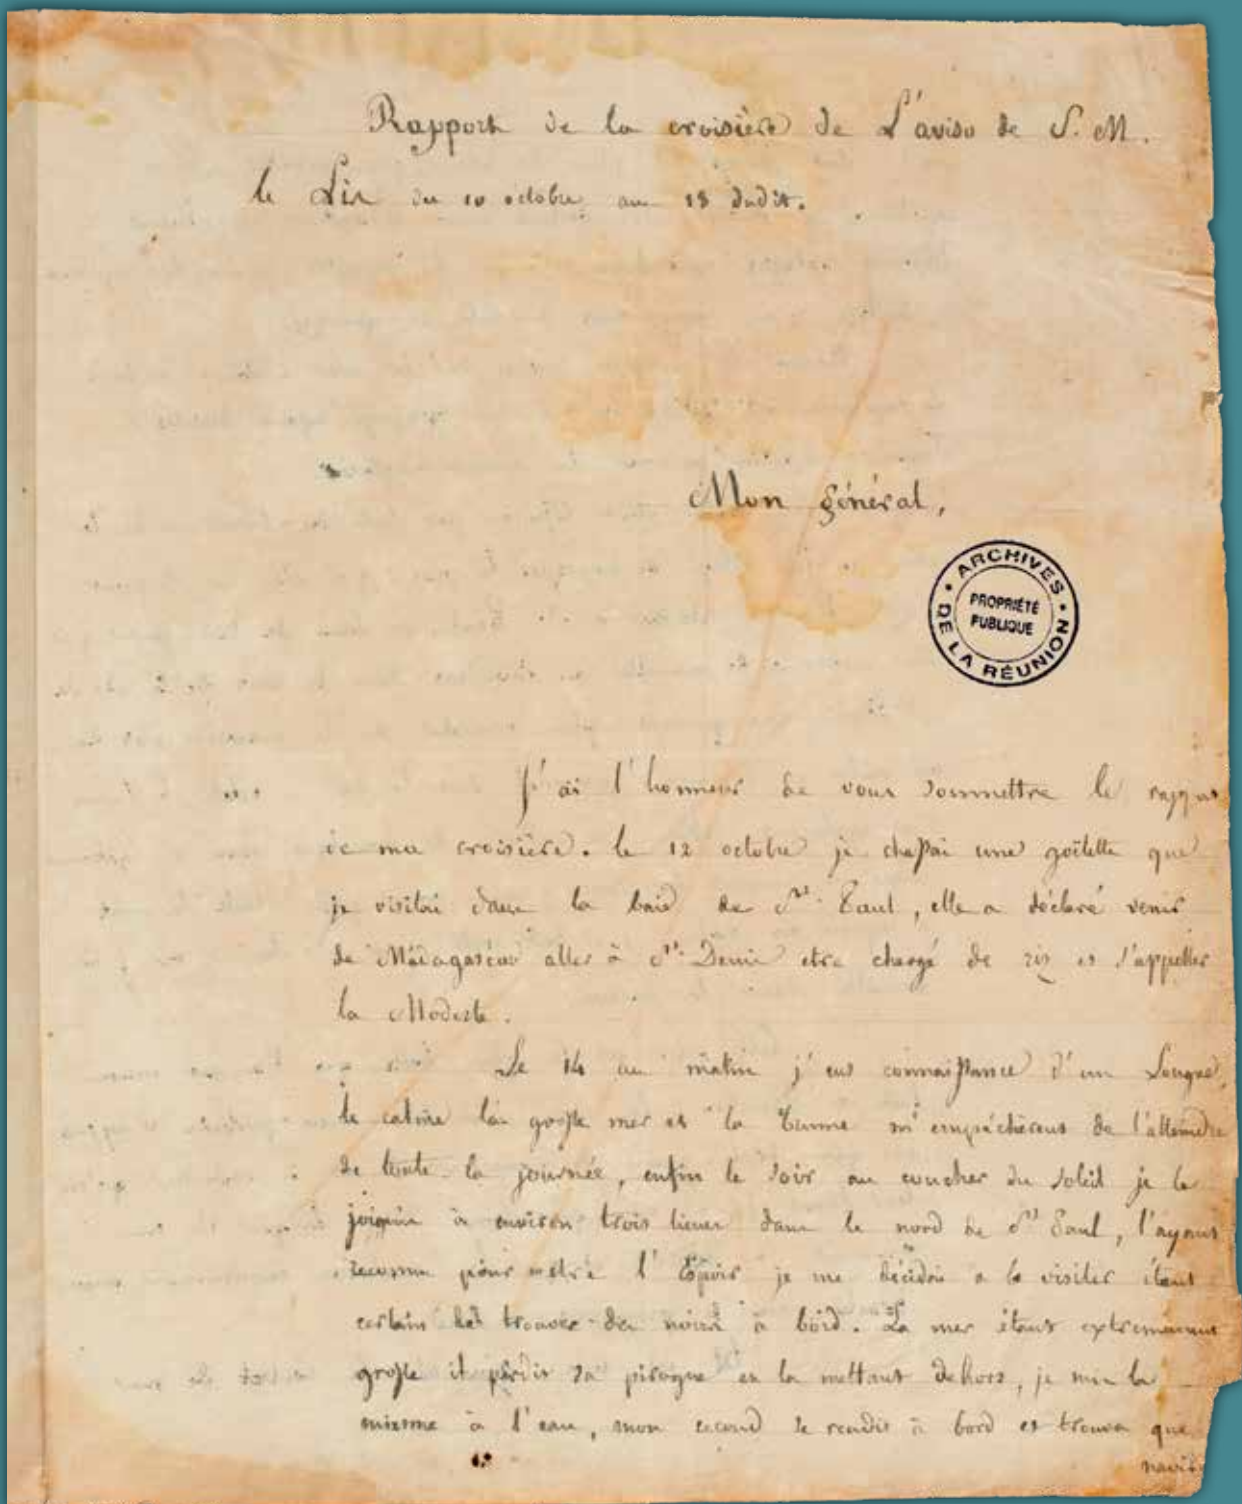 Rapport de la croisière de L'aviso de S. M.
le Lis du 10 octobre au 18 dudit.
Mon général,
ARCHIVES DE LA RÉUNION
PROPRIÉTÉ
PUBLIQUE
J'ai l'honneur de vous soumettre le rapport
de ma croisière. le 12 octobre je chassai une goëlette que
je visitai dans la baie de St. Paul, elle a déclaré venir
de Madagascar aller à St. Denis etre chargé de riz et s'appeller
la Modeste.
Le 14 au matin j'eus connaissance d'un Lougre,
le calme la grosse mer et la brume m'empêchèrent de l'atteindre
de toute la journée, enfin le soir au coucher du soleil je le
joignis à environ trois lieues dans le nord de St Paul, l'ayant
reconnu pour être l'Espoir je me décidai a le visiter étant
certain de trouver des noirs à bord. La mer étant extremement
grosse il perdit sa pirogue en la mettant dehors, je mis la
mienne à l'eau, mon second se rendit à bord et trouva que